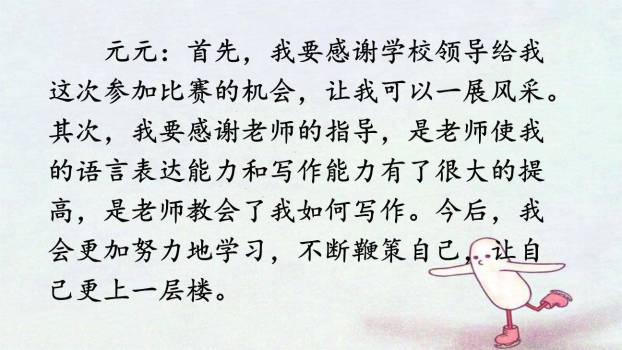 元元：首先，我要感谢学校领导给我
这次参加比赛的机会，让我可以一展风采。
其次，我要感谢老师的指导，是老师使我
的语言表达能力和写作能力有了很大的提
高，是老师教会了我如何写作。今后，我
会更加努力地学习，不断鞭策自己，让自
己更上一层楼。